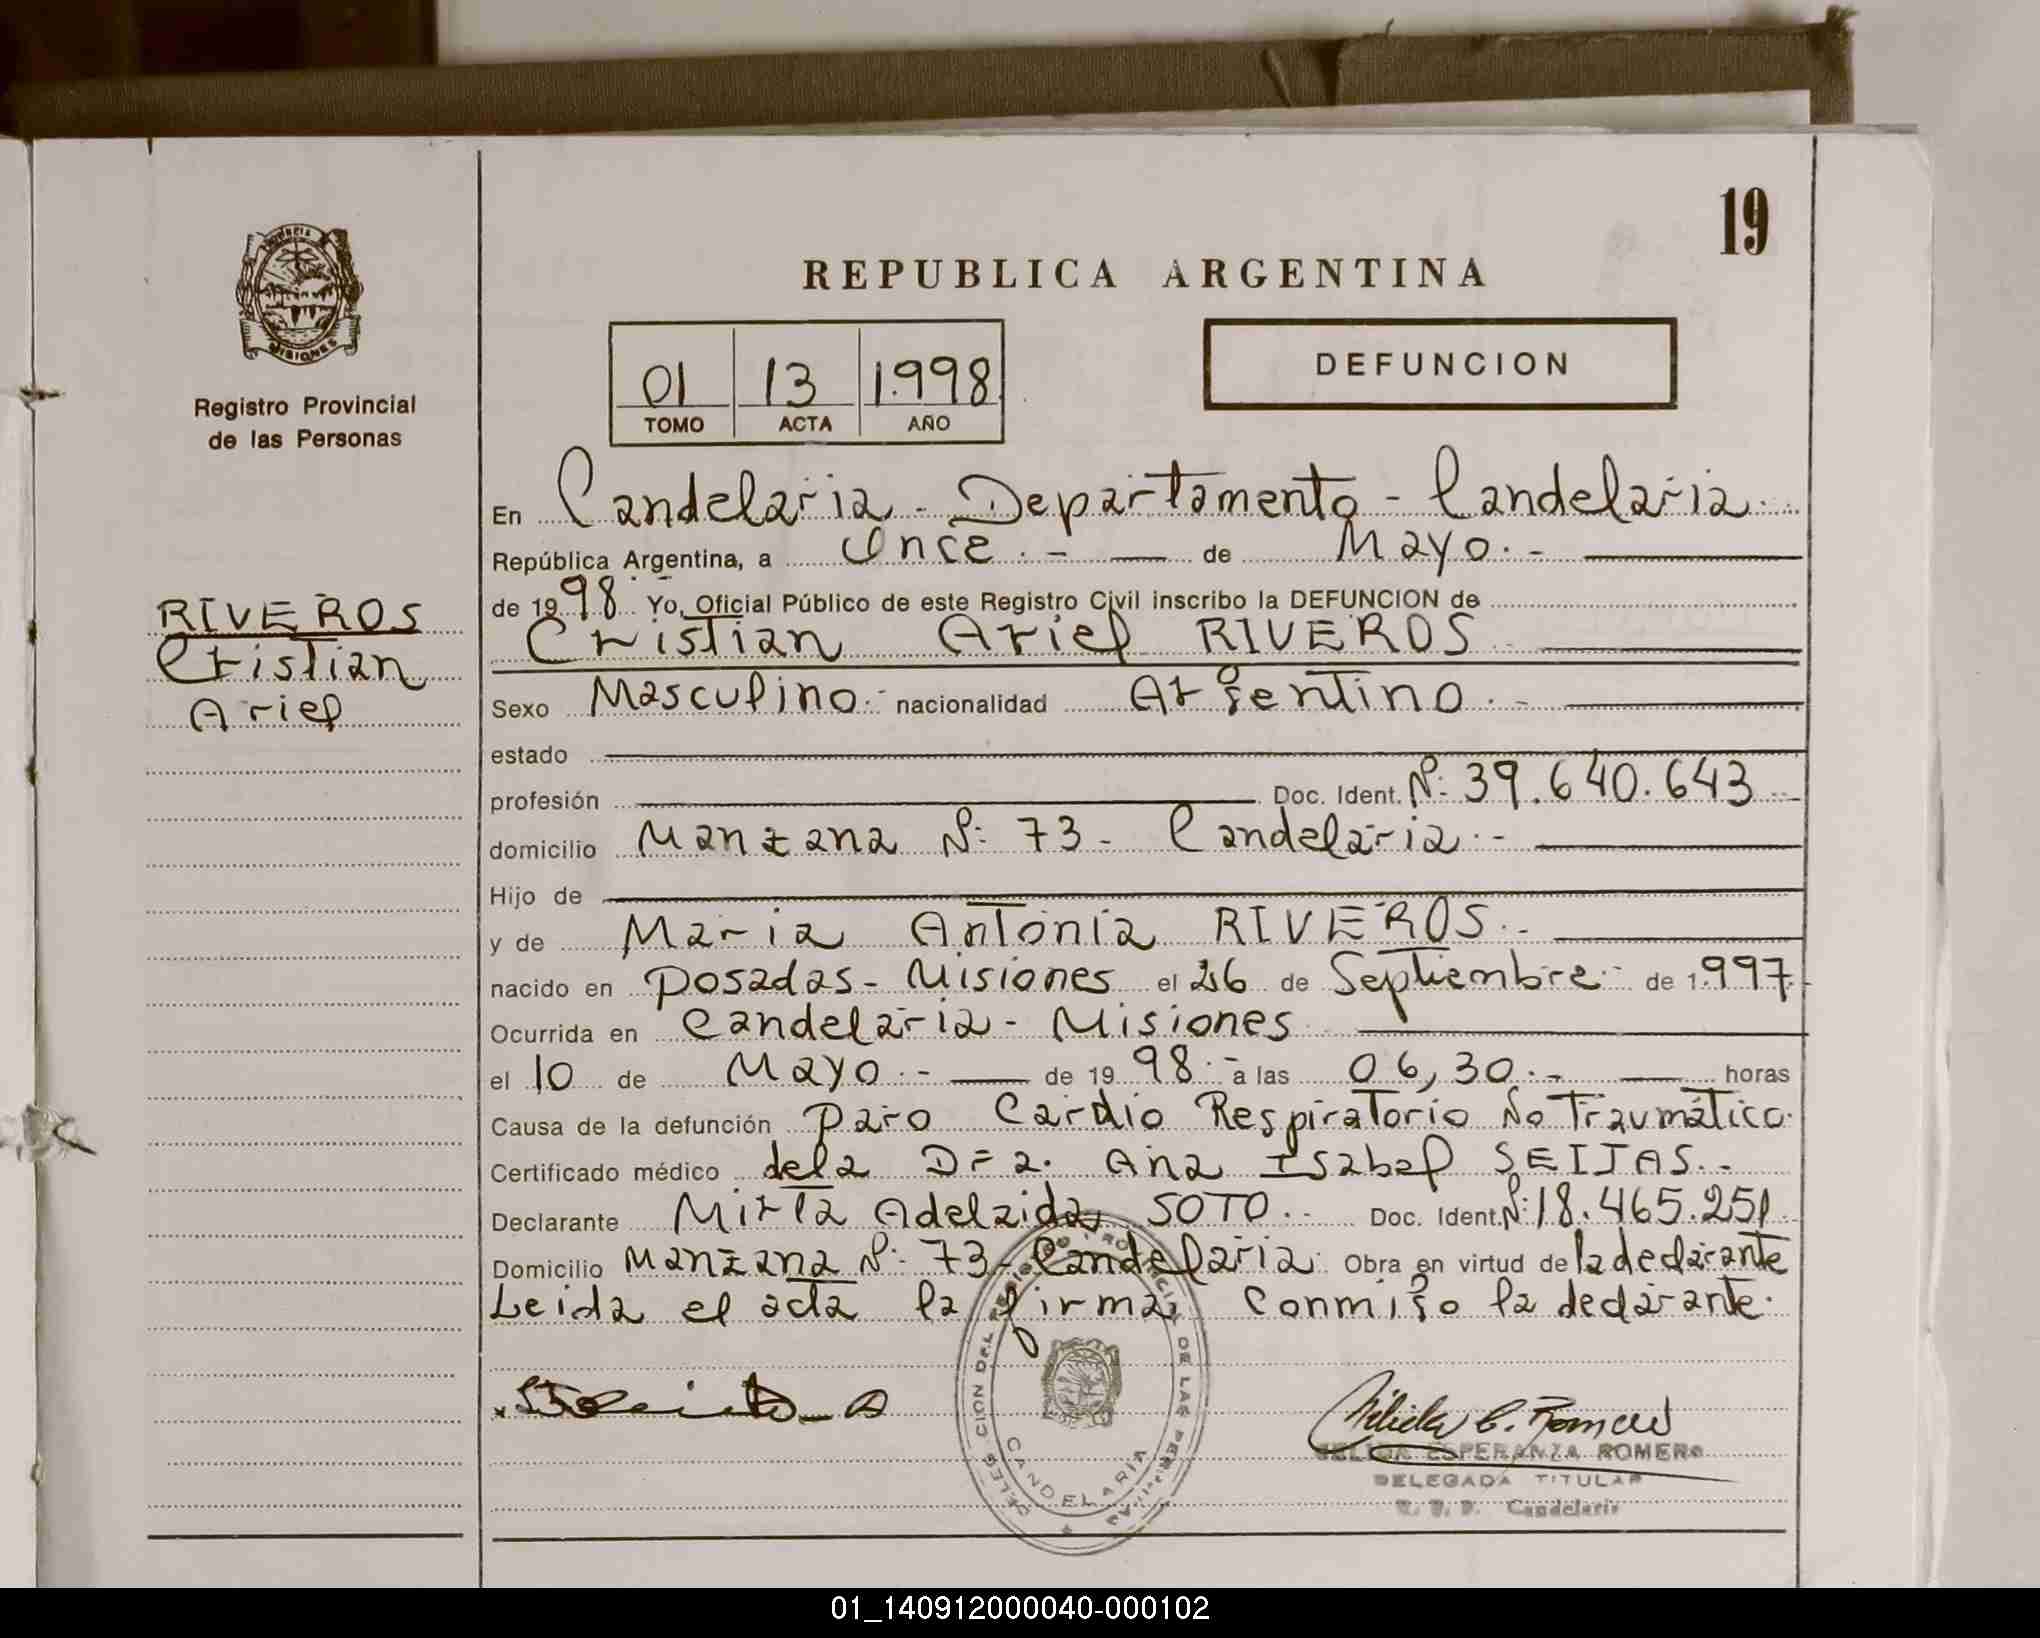 19
REPUBLICA ARGENTINA
PROVINCIA
MISIONES
Registro Provincial
de las Personas
01 13 1.998
TOMO ACTA AÑO
DEFUNCION
RIVEROS
Cristian
Ariel
En Candelaria - Departamento - Candelaria.
República Argentina, a Once. - de Mayo. -
de 1998 Yo, Oficial Público de este Registro Civil inscribo la DEFUNCION de
Cristian Ariel RIVEROS
Sexo Masculino. - nacionalidad Argentino. -
estado
profesión Doc. Ident. Nº: 39.640.643
domicilio Manzana Nº: 73 - Candelaria. -
Hijo de
y de Maria Antonia RIVEROS. -
nacido en Posadas - Misiones el 26 de Septiembre - de 1.997.
Ocurrida en Candelaria - Misiones
el 10 de Mayo. - de 1998. - a las 06,30. - horas
Causa de la defunción Paro Cardio Respiratorio No Traumático.
Certificado médico de la Dra. Ana Isabel SEIJAS. -
Declarante Mirta Adelaida SOTO. - Doc. Ident. Nº: 18.465.251
Domicilio Manzana Nº: 73 - Candelaria. Obra en virtud de la declarante
Leida el acta la firma, conmigo la declarante.
CANDELARIA
NELIDA ESPERANZA ROMERO
DELEGADA TITULAR
Candelaria
01_140912000040-000102